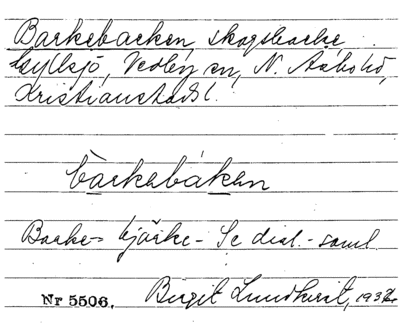 Barkebacken, skogsbacke
Kyllsjö, Vedby sn, N. Åsbo hd,
Kristianstads l.
bàrkebákan
Barke- bjärke- Se dial.- saml.
Nr 5506. Birgit Lundkvist, 1932.